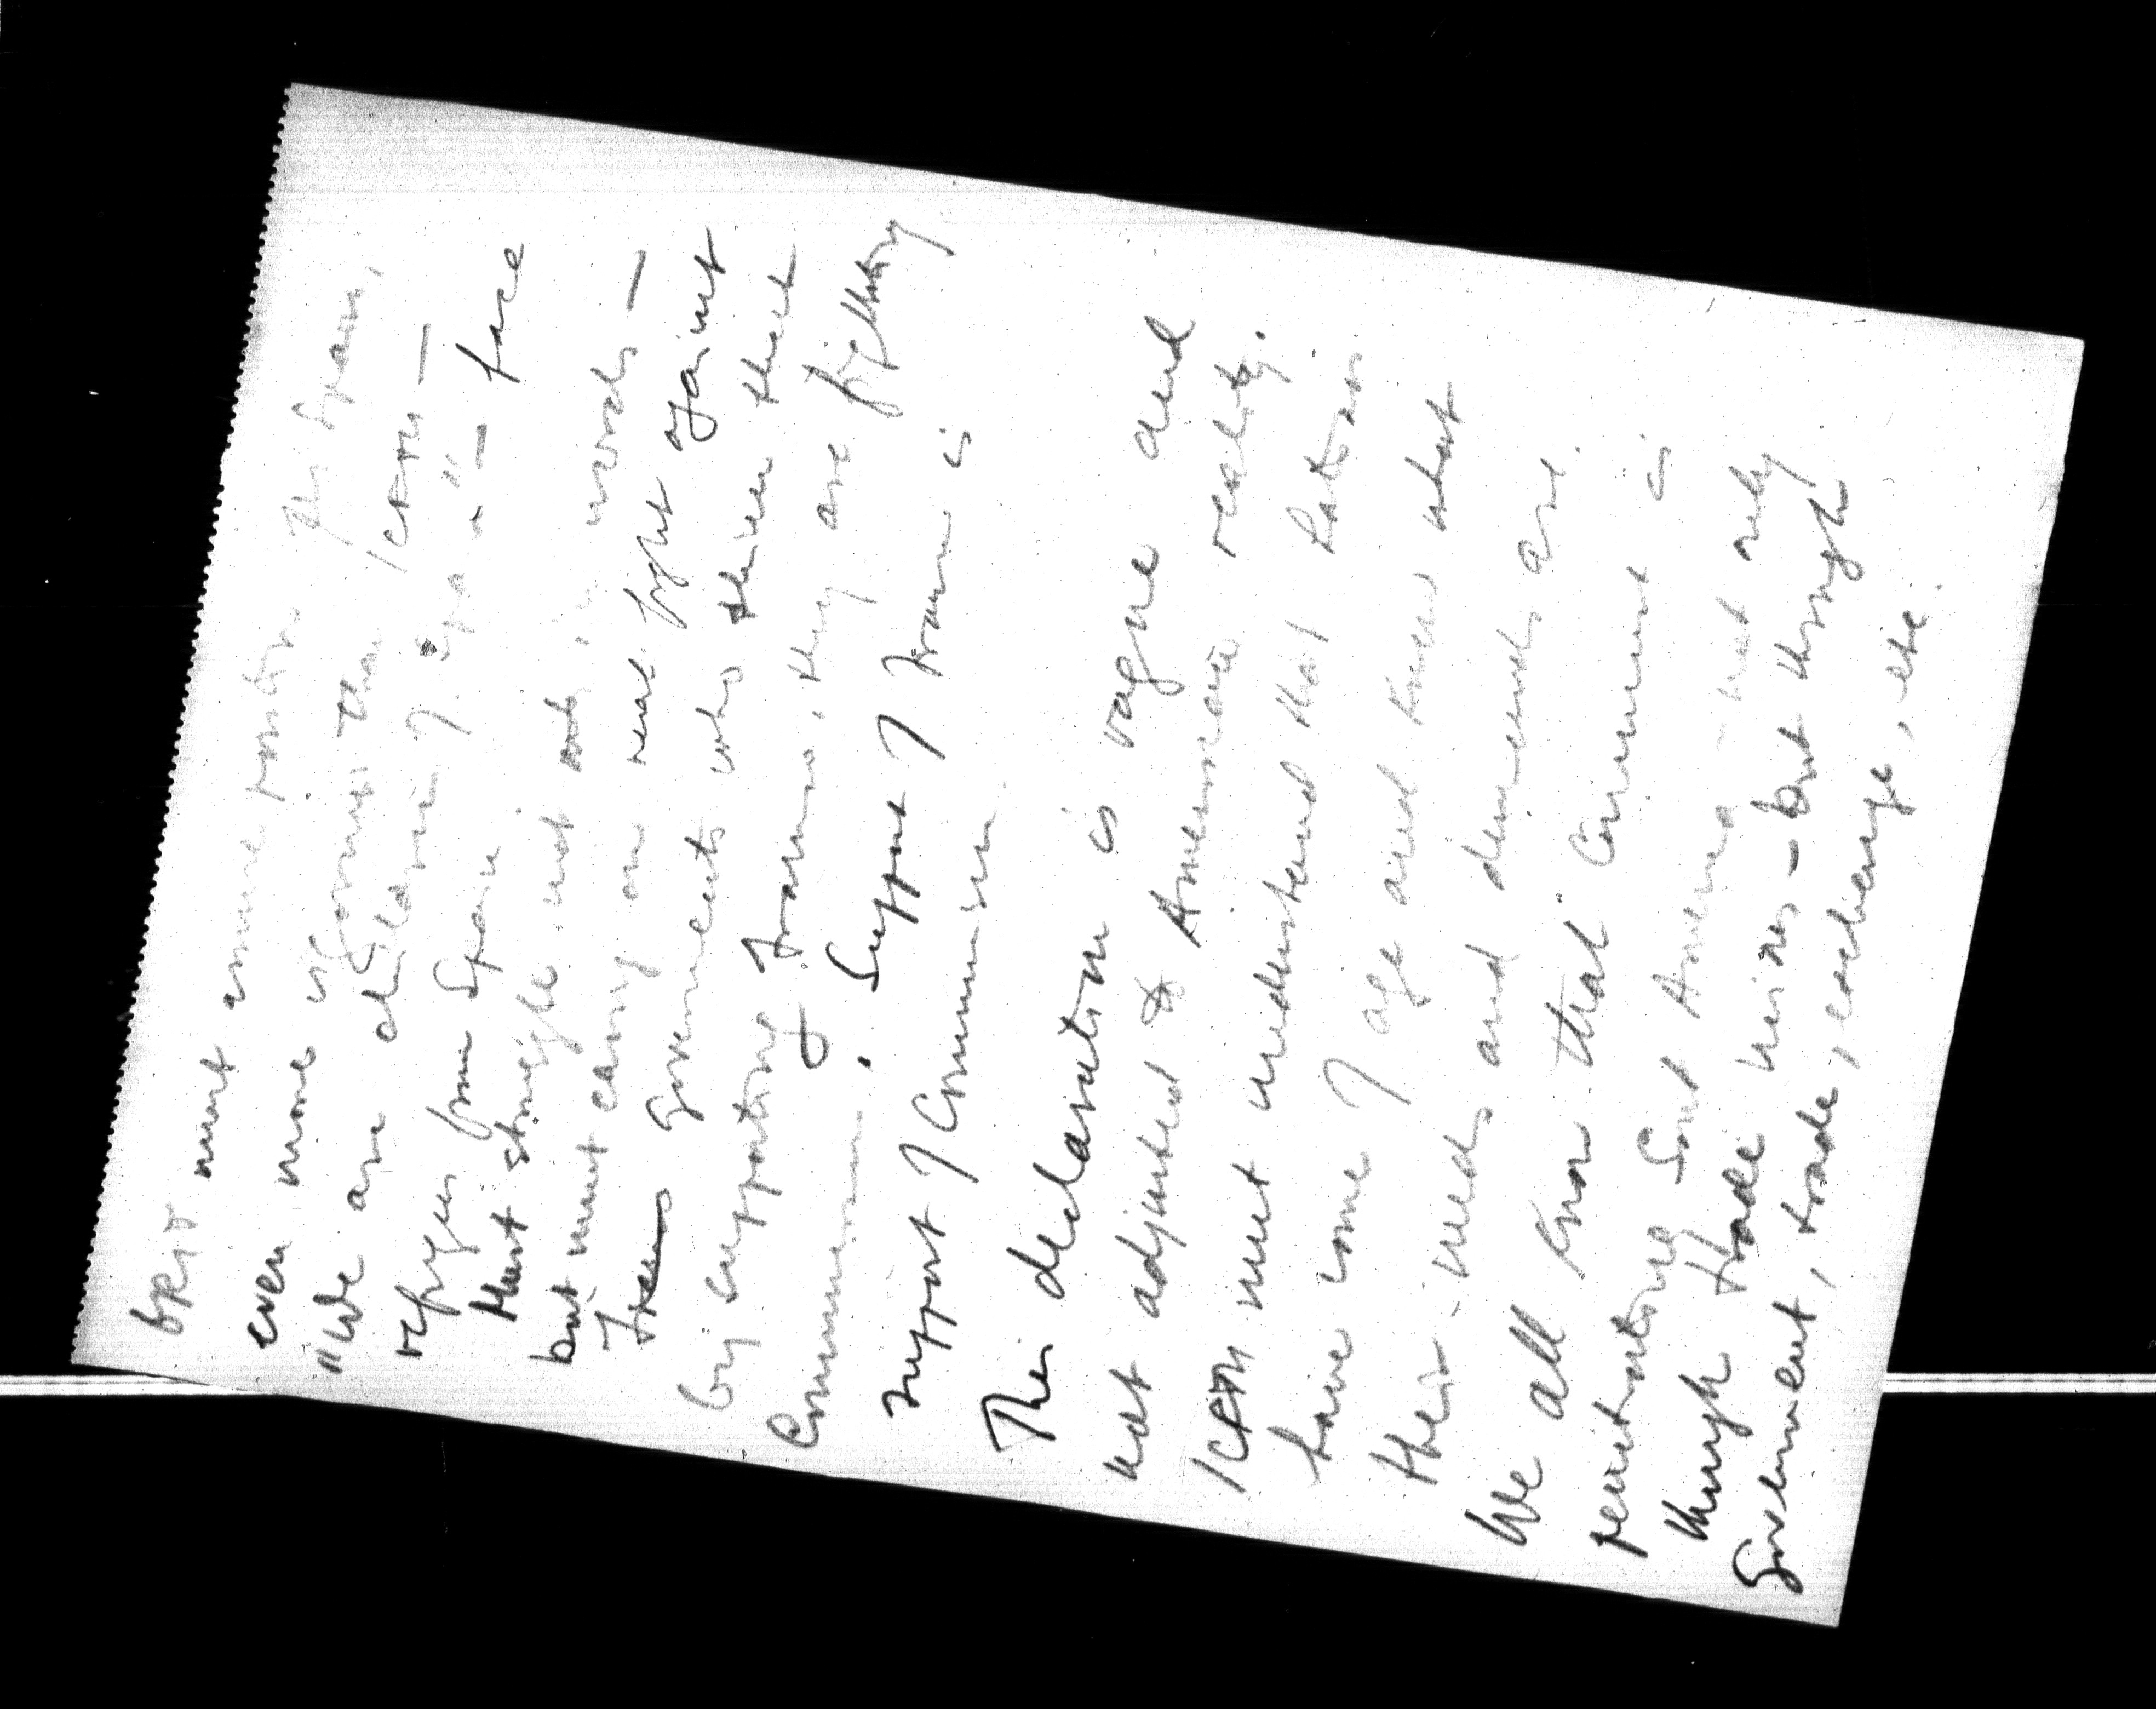 must assure position for Spain,
even more vigorous than ICFTU —
"We are children of Spa " — free
refugees from Spain.
Must struggle not only in words —
but must carry on real fight against
Governments who think that
by supporting Franco, they are fighting
Communism. Support of Franco is
support of Communism.
This declaration is vague and
not adjusted to American reality.
ICFTU must understand that Latins
have come of age and know what
their needs and demands are.
We all know that Communism is
penetrating South America — not only
through trade unions — but through
Government, trade, exchange, etc.